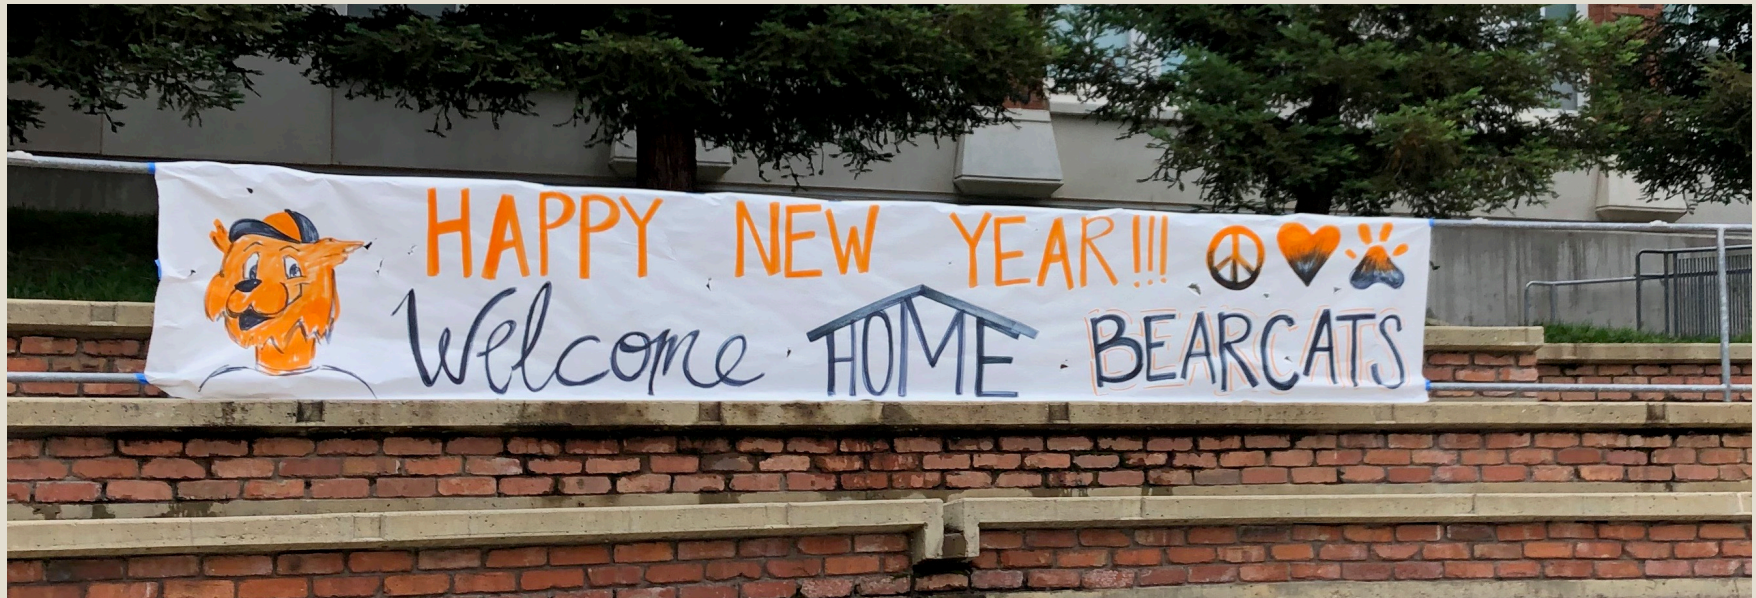 HAPPY NEW YEAR!!!
Welcome HOME BEARCATS